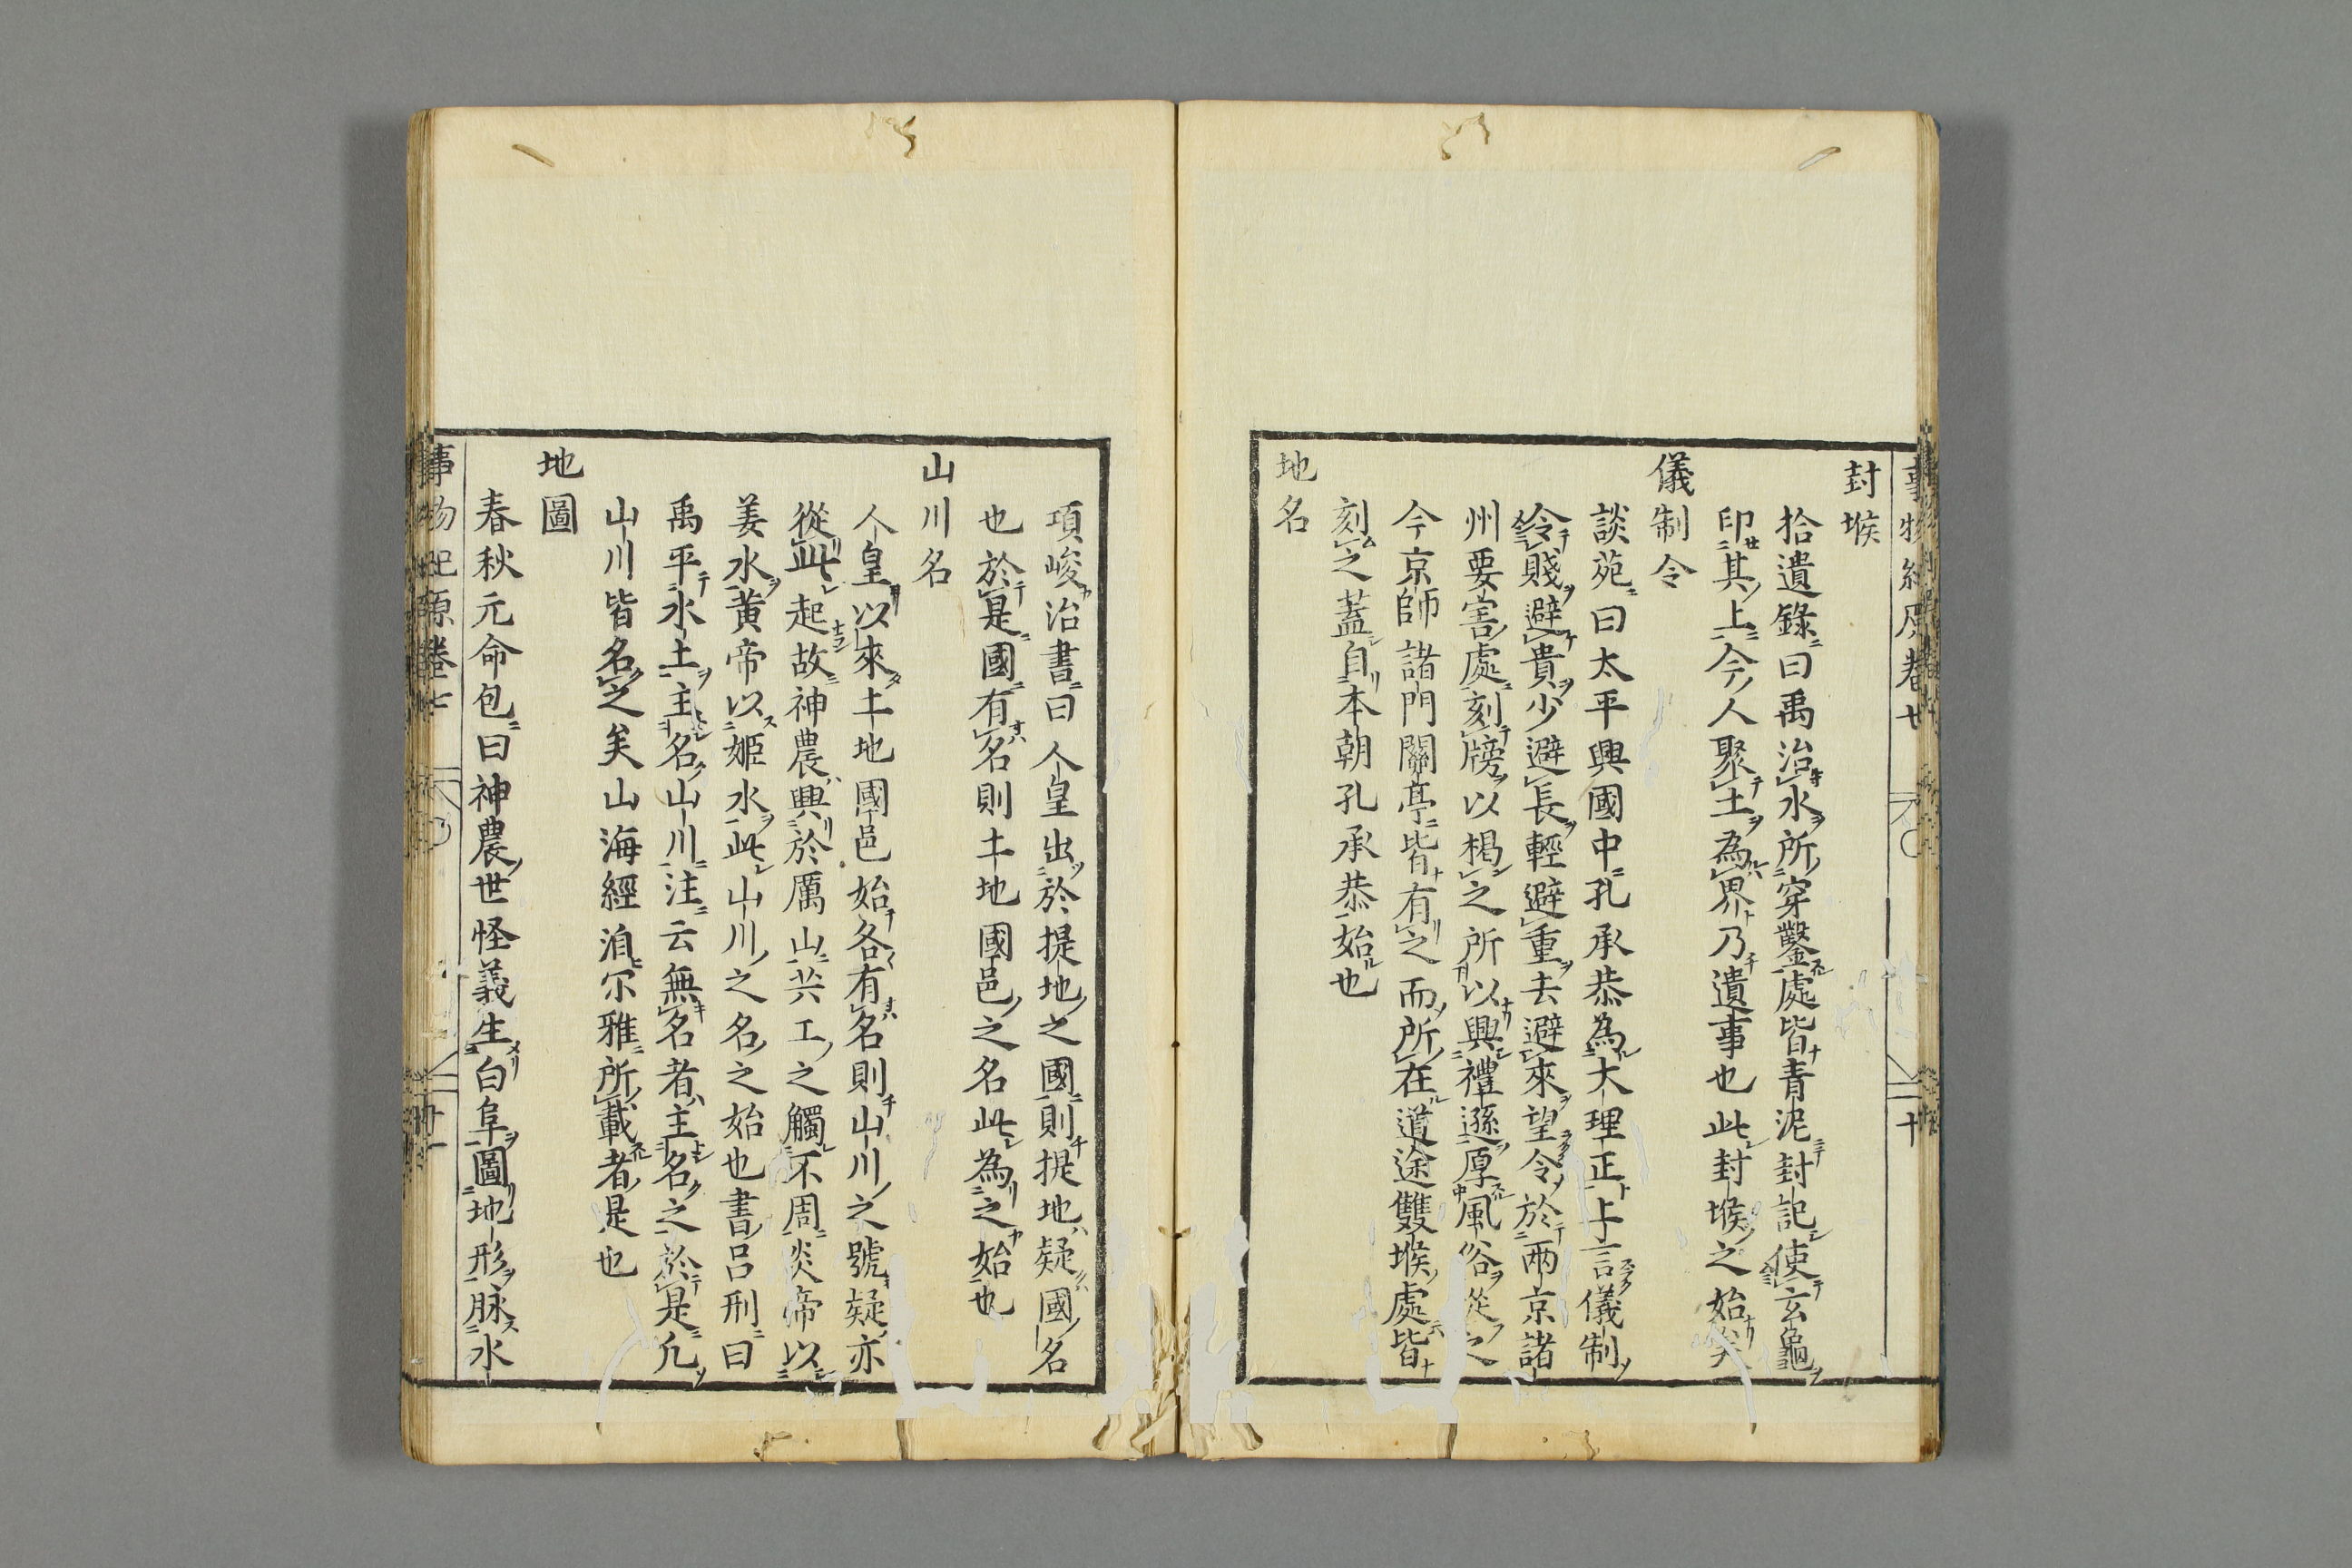 封堠
拾遺錄曰禹治水所穿鑿處皆青泥封記使玄龜
印其上今人聚土為界乃遺事也此封堠之始矣
儀制令
談苑曰太平興國中孔承恭為大理正上言儀制
令賤避貴少避長輕避重去避來望令於兩京諸
州要害處刻牓以楬之所以興禮遜厚風俗從之
今京師諸門關亭皆有之而所在道途雙堠處皆
刻之蓋自本朝孔承恭始也
地名
項峻治書曰人皇出於提地之國則提地疑國名
也於是國有名則土地國邑之名此為之始也
山川名
人皇以來土地國邑始各有名則山川之號疑亦
從此起故神農興於厲山共工之觸不周炎帝以
姜水黃帝以姬水此山川之名之始也書呂刑曰
禹平水土主名山川注云無名者主名之於是凢
山川皆名之矣山海經洎尔雅所載者是也
地圖
春秋元命包曰神農世怪義生白阜圖地形脉水
事物紀原卷七